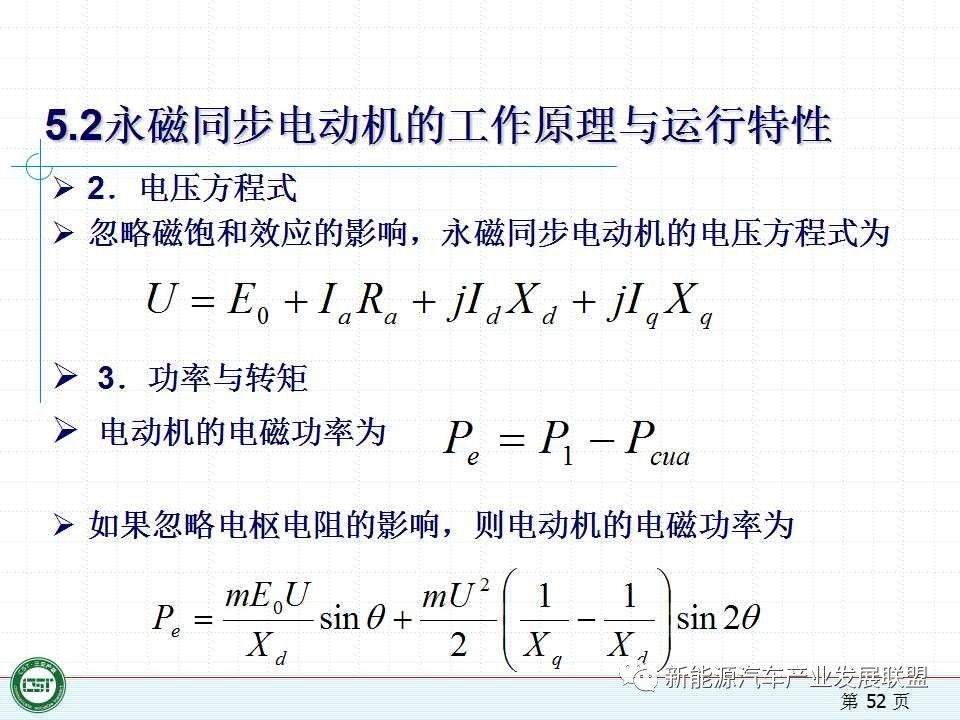 5.2永磁同步电动机的工作原理与运行特性
➢ 2．电压方程式
➢ 忽略磁饱和效应的影响，永磁同步电动机的电压方程式为
U = E₀ + IₐRₐ + jI_d X_d + jI_q X_q
➢ 3．功率与转矩
➢ 电动机的电磁功率为 P_e = P₁ − P_cua
➢ 如果忽略电枢电阻的影响，则电动机的电磁功率为
P_e = \frac{mE_0U}{X_d} sin θ + \frac{mU^2}{2} ( \frac{1}{X_q} − \frac{1}{X_d} ) sin 2θ
新能源汽车产业发展联盟
CST
第 52 页